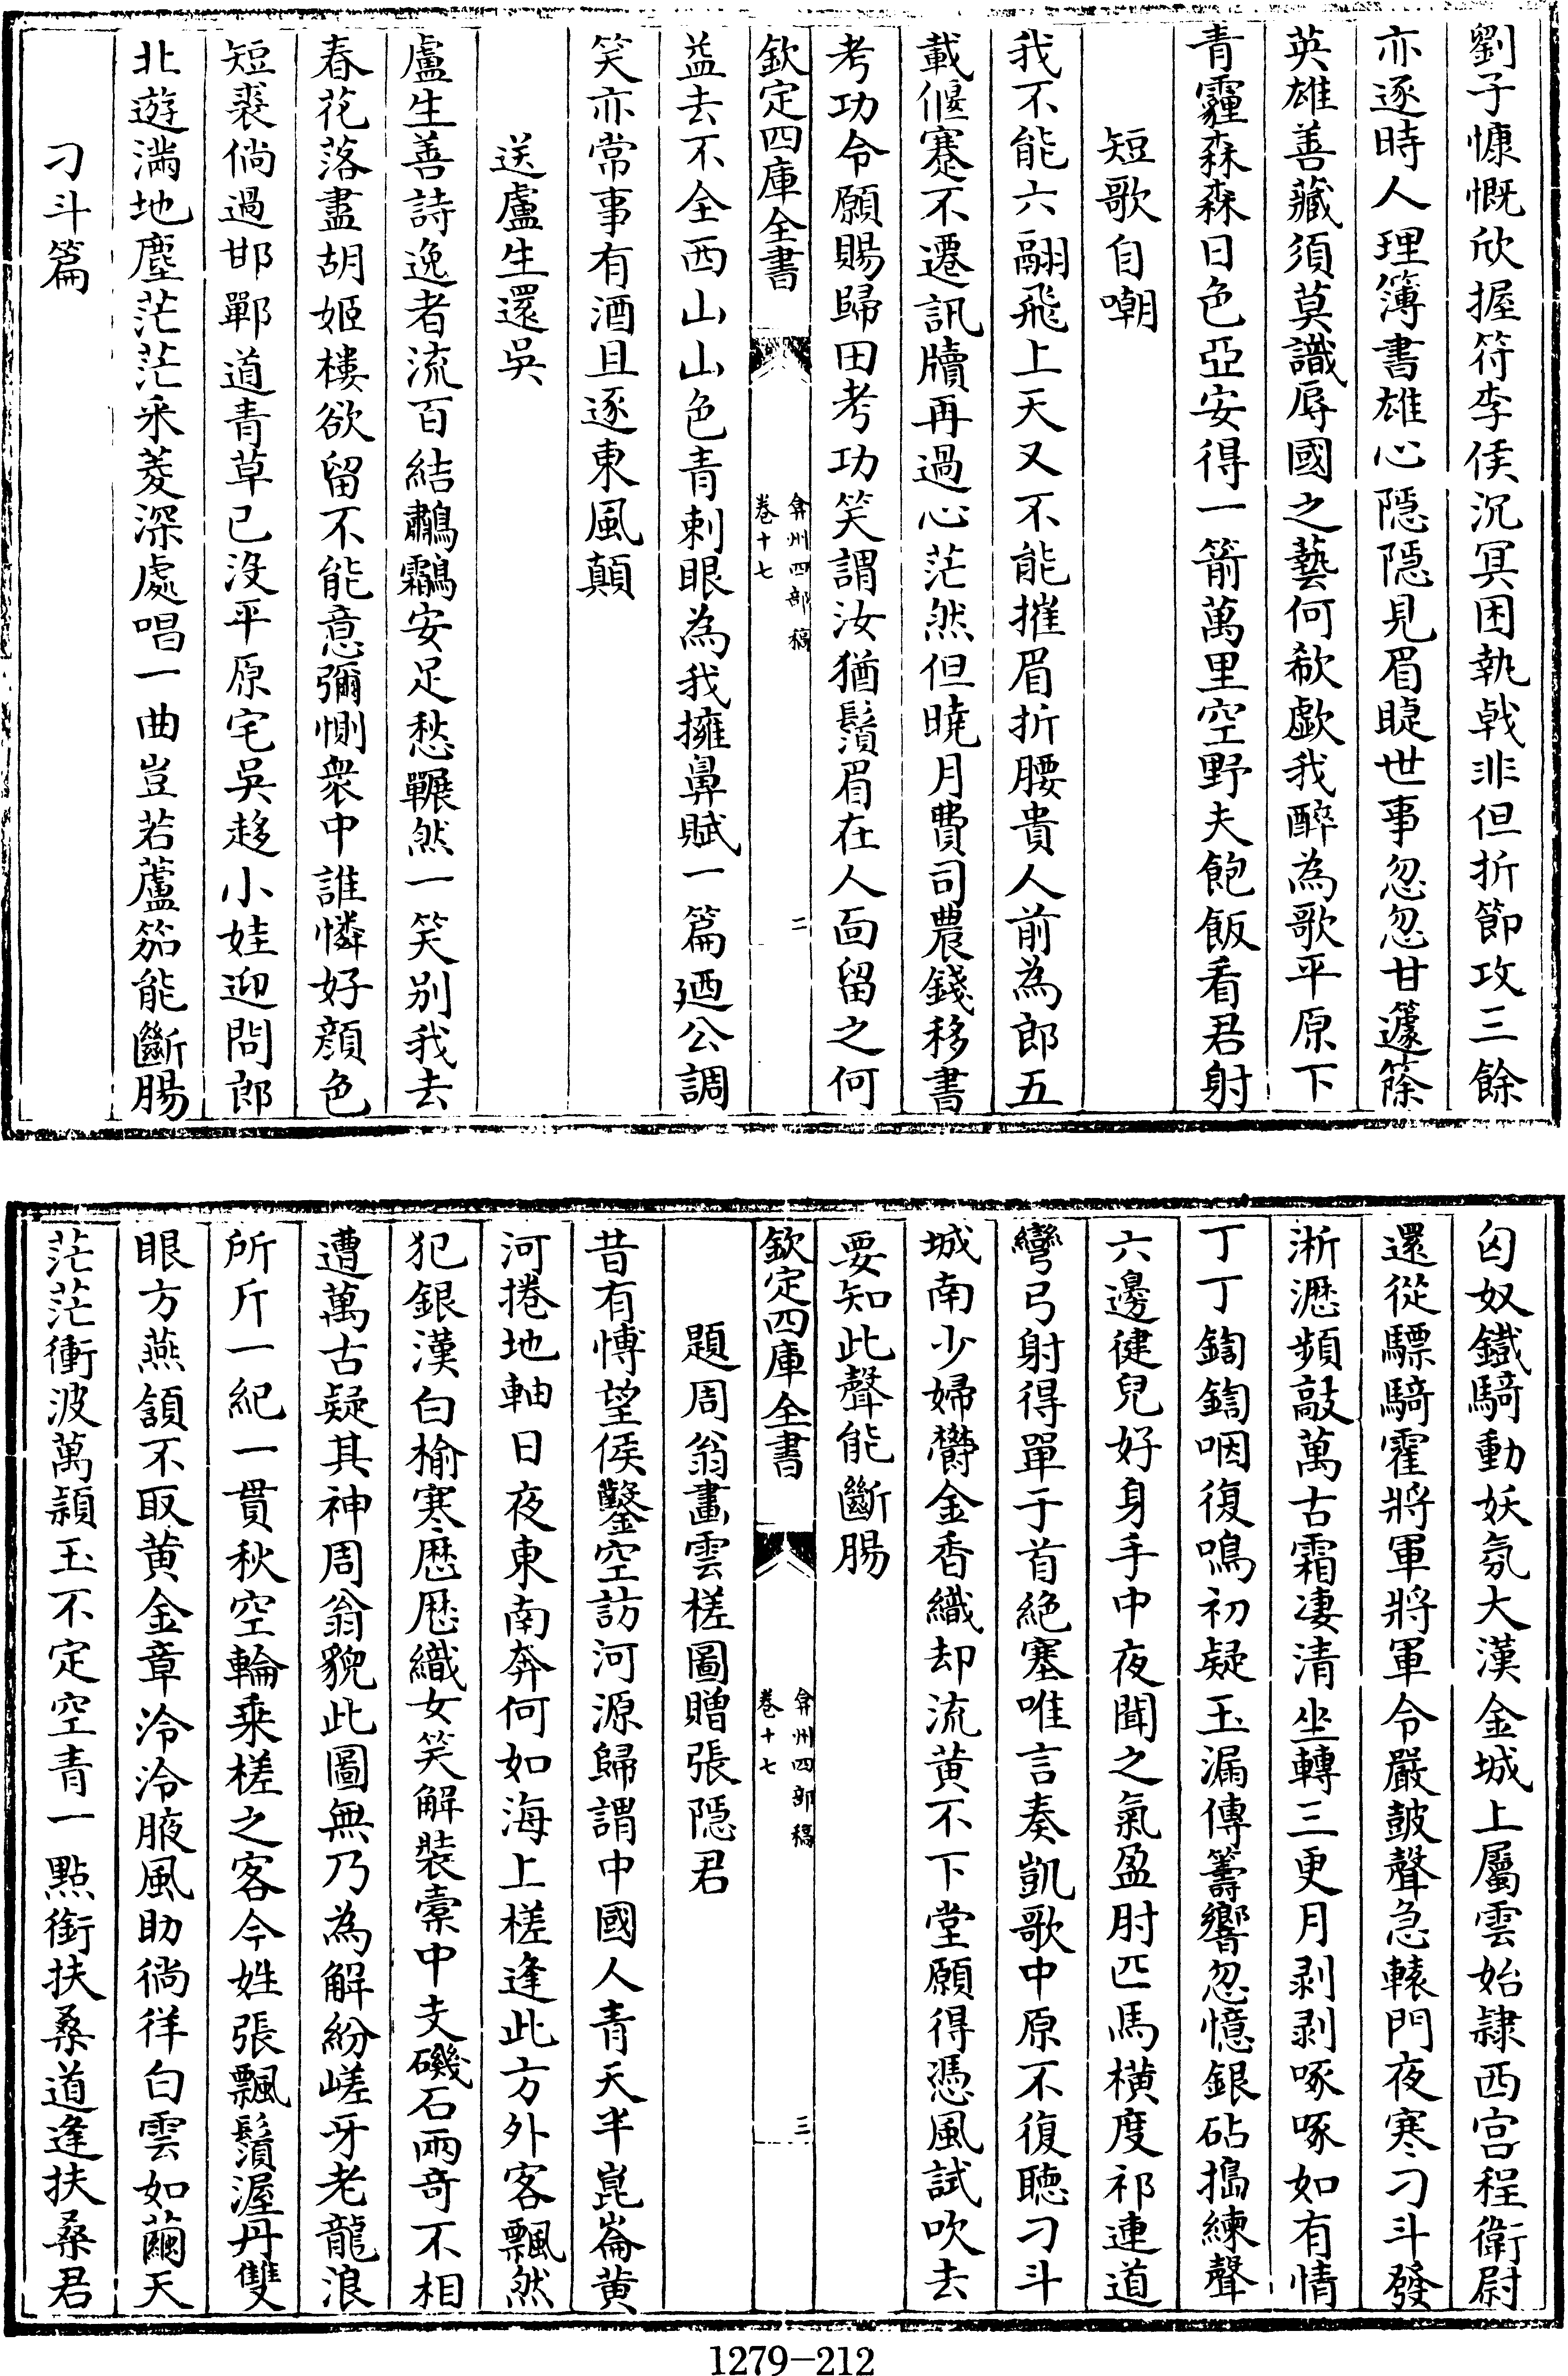 劉子慷慨欣握符李侯沉冥困執㦸非但折節攻三餘
亦逐時人理簿書雄心隠隠見眉睫世事忽忽甘籧篨
英雄善藏須莫識辱國之藝何欷歔我醉為歌平原下
青霾森森日色亞安得一箭萬里空野夫飽飯看君射
短歌自嘲
我不能六翮飛上天又不能摧眉折腰貴人前為郎五
載偃蹇不遷訊牘再過心茫然但曉月費司農錢移書
考功令願賜歸田考功笑謂汝猶鬚眉在人面留之何
欽定四庫全書
弇州四部稿
卷十七
二
益去不全西山山色青刺眼為我擁鼻賦一篇廼公調
笑亦常事有酒且逐東風顛
送盧生還吳
盧生善詩逸者流百結鷫鸘安足愁囅然一笑别我去
春花落盡胡姬樓欲留不能意彌惻衆中誰憐好顔色
短裘倘過邯鄲道青草已没平原宅吳趍小娃迎問郎
北遊滿地塵茫茫采菱深處唱一曲豈若蘆笳能斷腸
刁斗篇
匈奴鐵騎動妖氛大漢金城上屬雲始隷西宫程衛尉
還從驃騎霍將軍將軍令嚴鼓聲急轅門夜寒刁斗發
淅瀝頻敲萬古霜凄清坐轉三更月剥剥啄啄如有情
丁丁鍧鍧咽復鳴初疑玉漏傳籌響忽憶銀砧搗練聲
六邊健兒好身手中夜聞之氣盈肘匹馬横度祁連道
彎弓射得單于首絶塞唯言奏凱歌中原不復聽刁斗
城南少婦欎金香織却流黄不下堂願得憑風試吹去
要知此聲能斷腸
欽定四庫全書
弇州四部稿
卷十七
三
題周翁畫雲槎圖贈張隠君
昔有博望侯鑿空訪河源歸謂中國人青天半崑崙黄
河捲地軸日夜東南奔何如海上槎逢此方外客飄然
犯銀漢白榆寒歴歴織女笑解裝橐中支磯石兩竒不相
遭萬古疑其神周翁貌此圖無乃為解紛嵯牙老龍浪
所斤一紀一貫秋空輪乘槎之客今姓張飄鬚渥丹雙
眼方燕頷不取黄金章泠泠腋風助徜徉白雲如繭天
茫茫衝波萬頴玉不定空青一點銜扶桑道逢扶桑君
1279-212